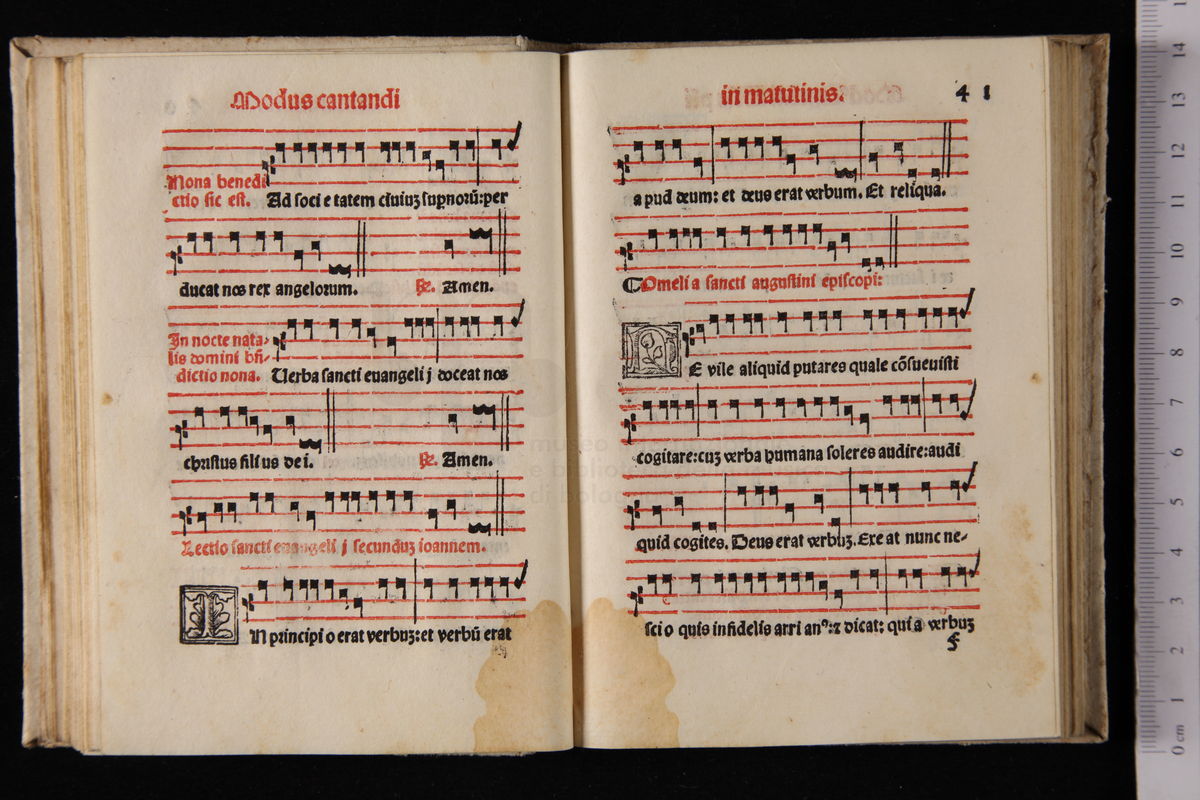 Modus cantandi
Nona benedi
ctio sic est. Ad soci e tatem ciuiuʒ supnoꝝ̄:per
ducat nos rex angelorum. ℟. Amen.
In nocte nata-
lis domini bn̄-
dictio nona. Uerba sancti euangeli j doceat nos
christus fili us de i. ℟. Amen.
Lectio sancti euangelij secunduʒ ioannem.
IN principi o erat verbuʒ:et verbū erat
in matutinis. 41
a pud deum: et deus erat verbum. Et reliqua.
Omeli a sancti augustini episcopi:
NE vile aliquid putares quale cōsueuisti
cogitare:cuʒ verba humana soleres audire:audi
quid cogites. Deus erat verbuʒ. Exe at nunc ne-
sci o quis infidelis arri anꝰ:⁊ dicat: qui a verbuʒ
museo
e biblio
di bologna
14
13
12
11
10
9
8
7
6
5
4
3
2
1
0 cm